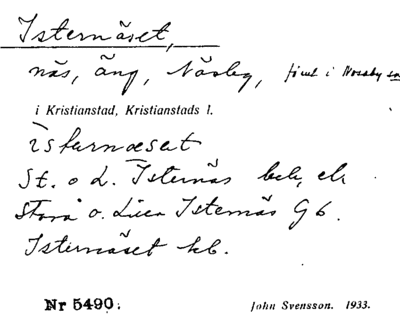 Isternäset,
näs, äng, Näsby, förut i Nosaby sn
i Kristianstad, Kristianstads l.
isternæset
St. o L. Isternäs beb, ek
Stora o. Lilla Isternäs G 6.
Isternäset kb.
Nr 5490. John Svensson. 1933.